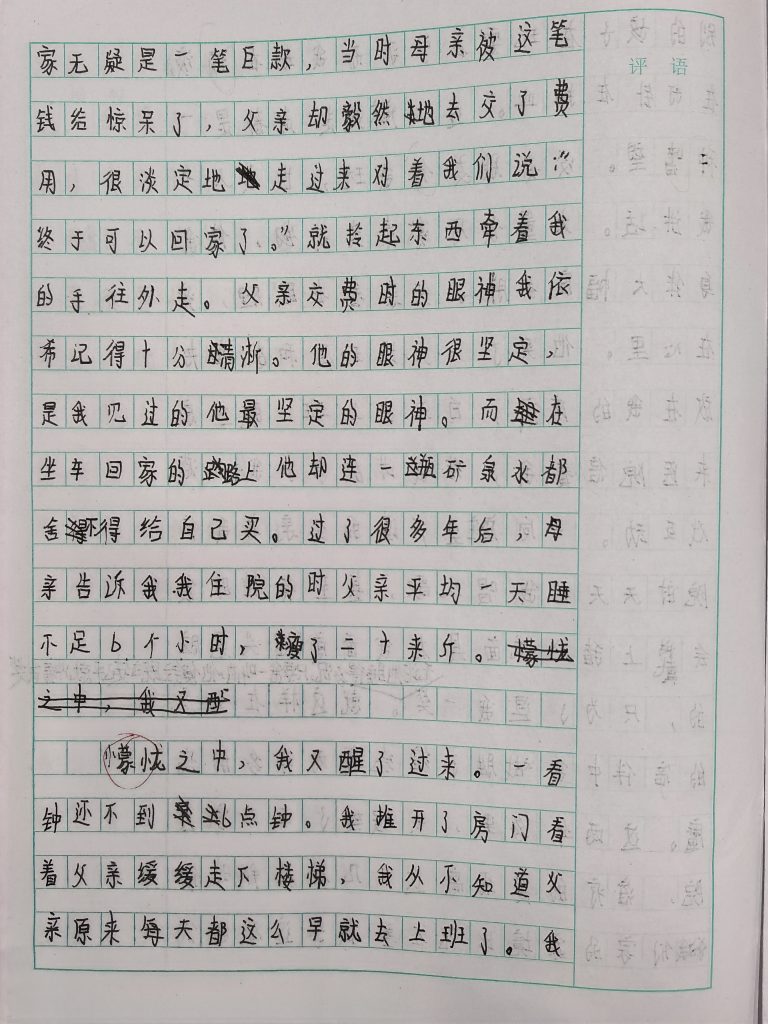 评语
家无疑是一笔巨款，当时母亲被这笔
钱给惊呆了，父亲却毅然地去交了费
用，很淡定地走过来对着我们说：“
终于可以回家了。”就拎起东西牵着我
的手往外走。父亲交费时的眼神我依
希记得十分清淅。他的眼神很坚定，
是我见过的他最坚定的眼神。而在
坐车回家的路上他却连一瓶矿泉水都
舍不得给自己买。过了很多年后，母
亲告诉我我住院的时父亲平均一天睡
不足6个小时，瘦了二十来斤。檬怰
之中，我又醒
懞怰之中，我又醒了过来。一看
钟还不到六点钟。我推开了房门看
着父亲缓缓走下楼梯，我从不知道父
亲原来每天都这么早就去上班了。我